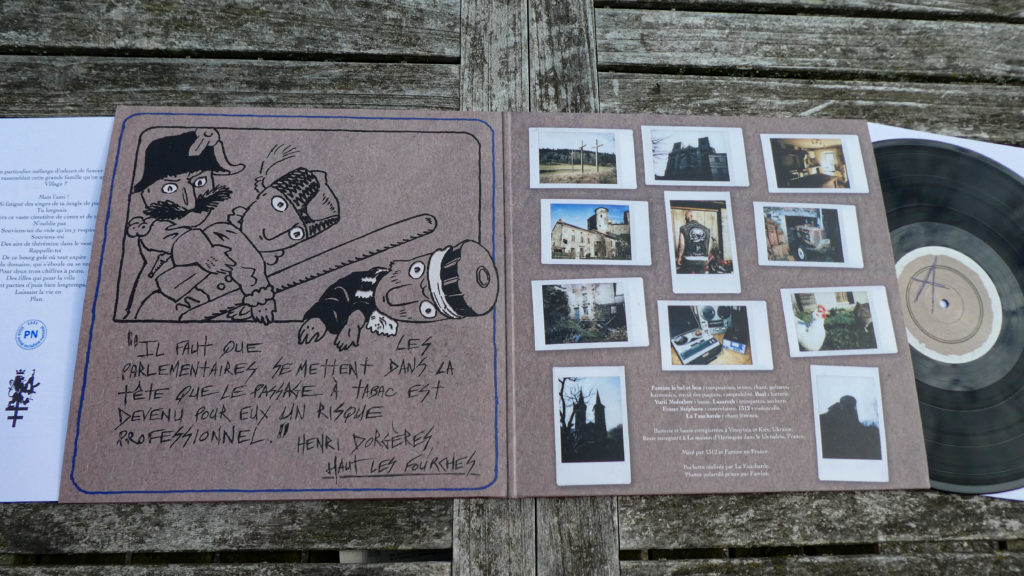 particulier mélange d'odeurs de fumier
rassemblait cette grande famille qu'on
Village ?
Mais l'ami !
fatigué des singes de la jungle de
Tu lorgnais
ce vaste cimetière de cônes et de
N'oublie pas
Souviens-toi du vide qu'on y respire
Souviens-toi
Des airs de thérémine dans le vent
Rappelle-toi
De ce bourg gelé où tout expire
du domaine, qui s'éboule ou se
Pour deux trois chiffres à peine,
Des filles qui pour la ville
parties d'puis bien longtemps,
Laissant la vie en
Plan.
PN
"IL FAUT QUE LES
PARLEMENTAIRES SE METTENT DANS LA
TÊTE QUE LE PASSAGE À TABAC EST
DEVENU POUR EUX UN RISQUE
PROFESSIONNEL."
HENRI DORGÈRES
HAUT LES FOURCHES
Famine le bel et bon : composition, textes, chant, guitares,
harmonica, envoi des paquets, comptabilité. : batterie.
: basse. : trompettes, tambours.
: contrebasse. 1312 : violoncelle.
La Faucharde : chant féminin.
Batterie et basse enregistrées à Vinnytsia et Kiev, Ukraine.
Reste enregistré à La maison d'Herisspin dans le Livradois, France.
Mixé par 1312 et Famine en France.
Pochette réalisée par La Faucharde.
Photos polaroïd prises par Famine.
A